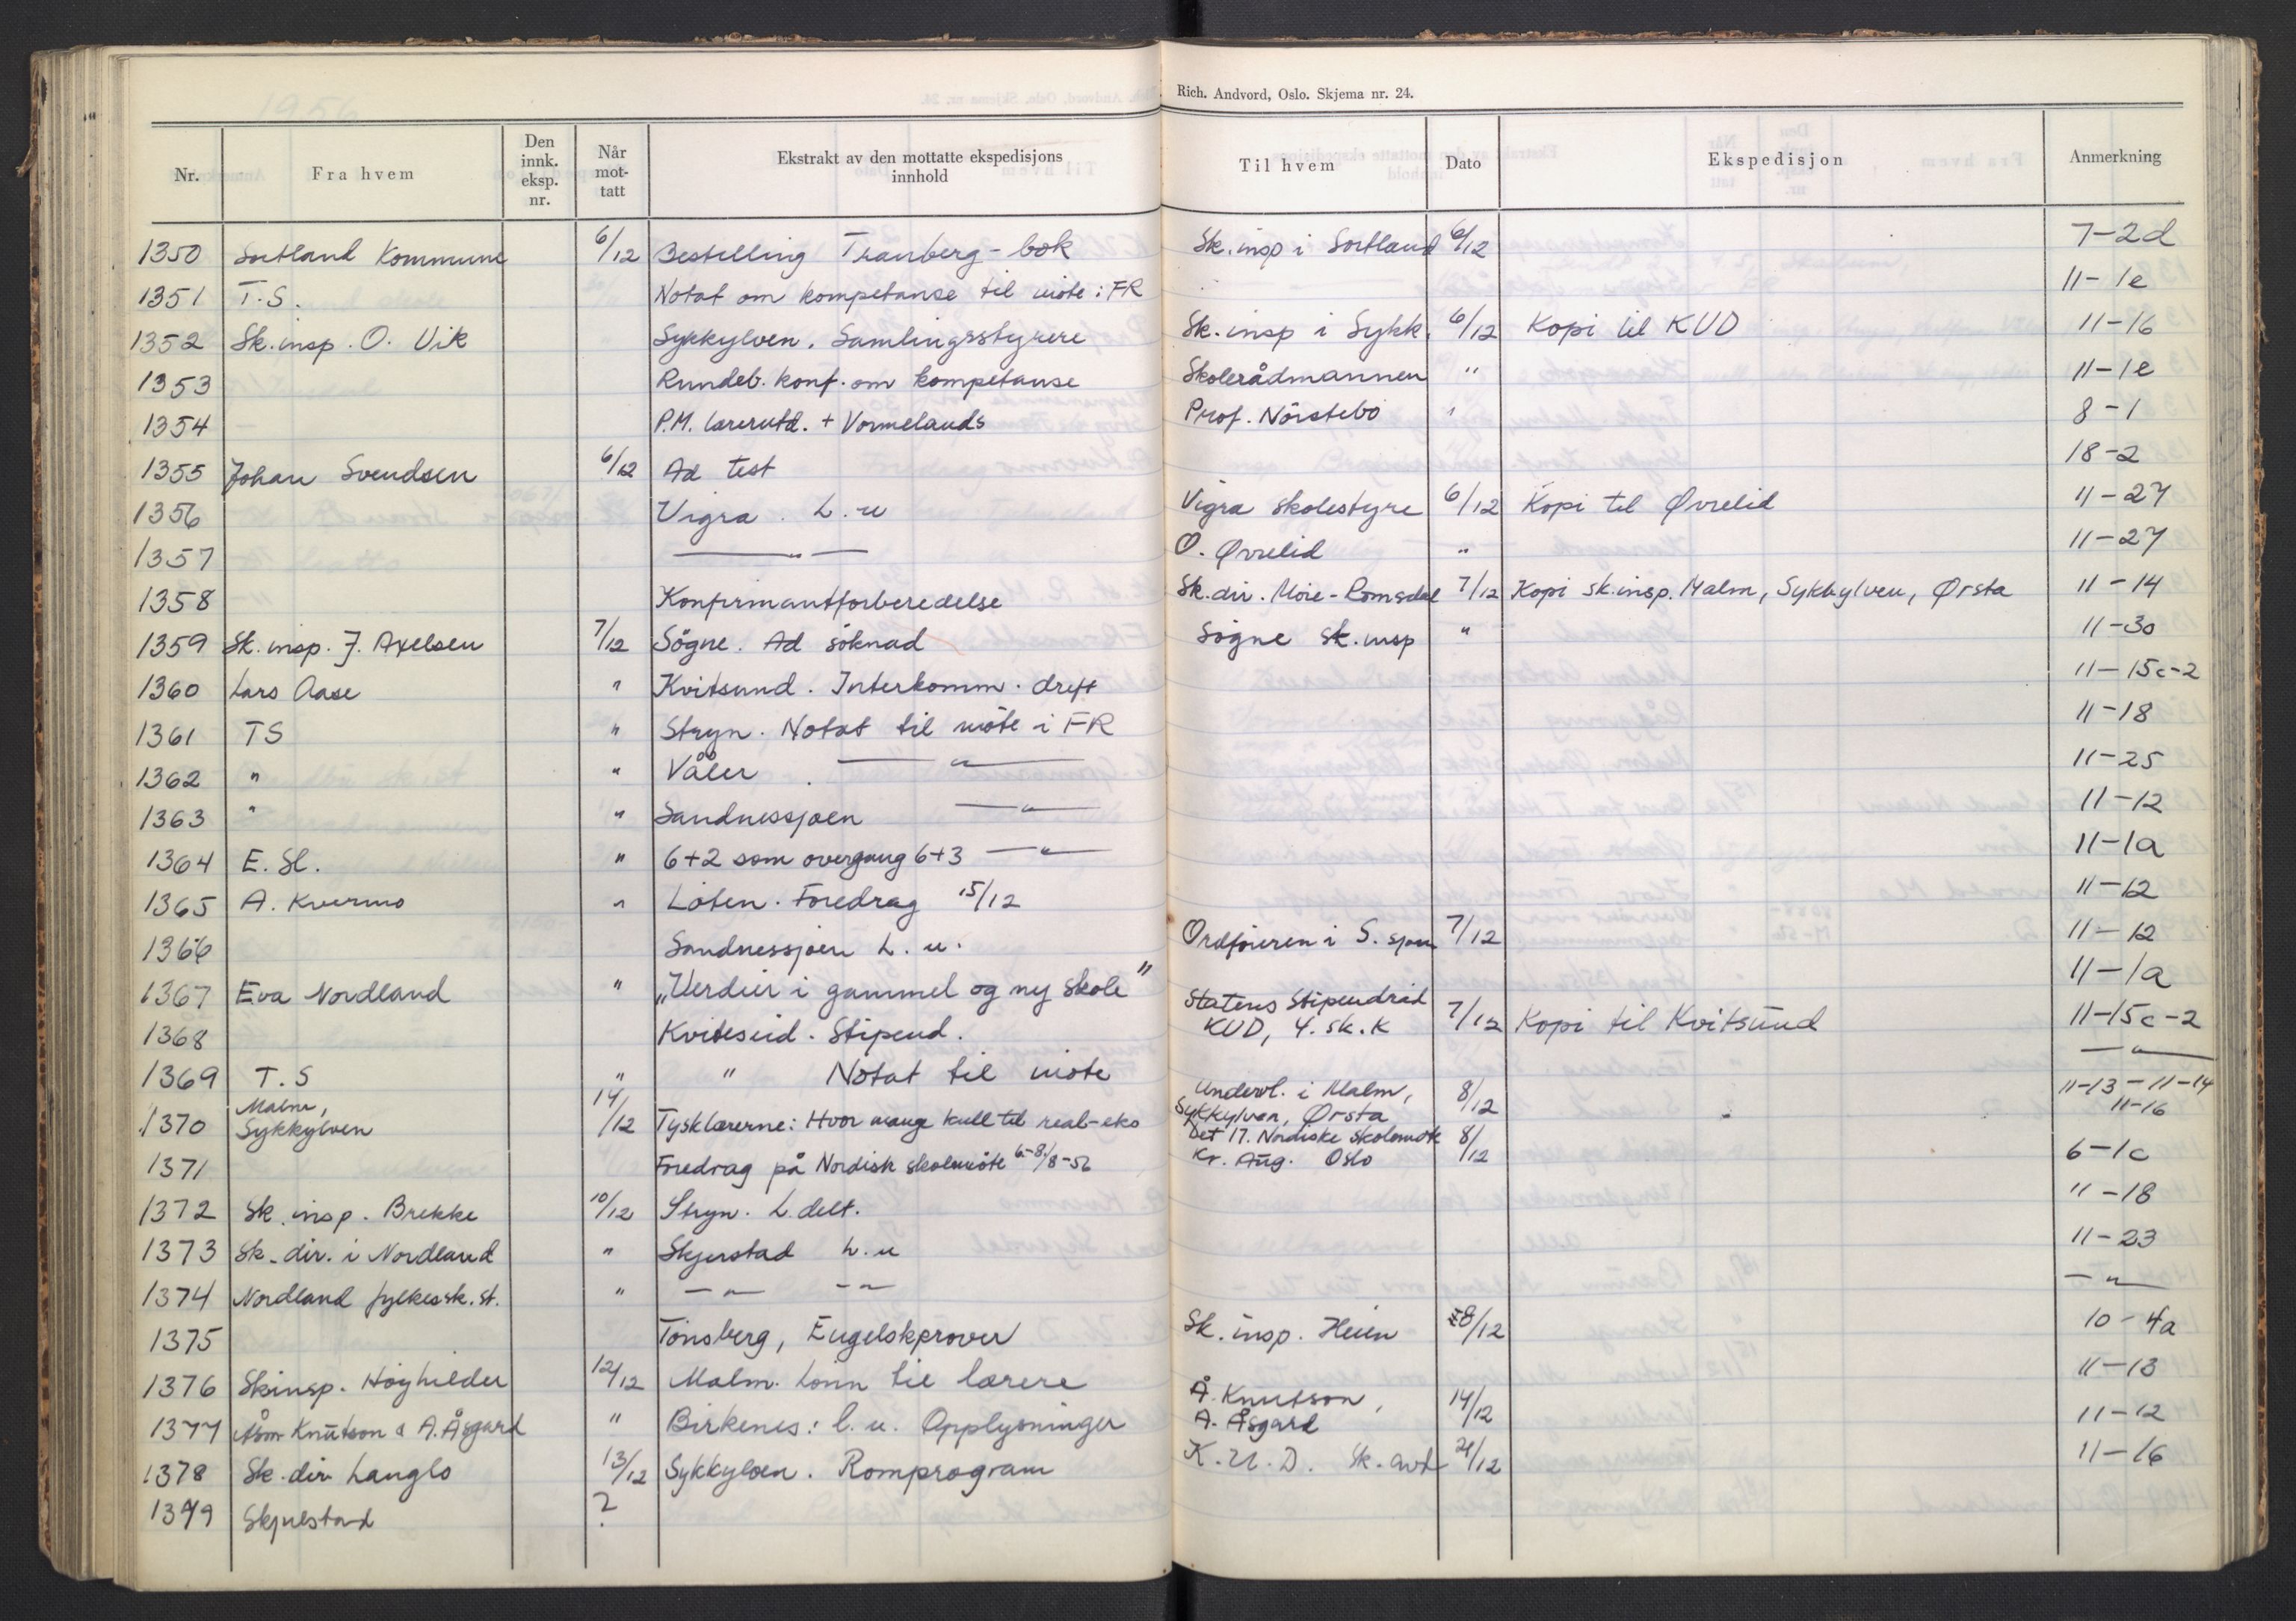 Rich. Andvord, Oslo. Skjema nr. 24.
Nr. Fra hvem Den innk. eksp. nr. Når mot- tatt Ekstrakt av den mottatte ekspedisjons innhold Til hvem Dato Ekspedisjon Anmerkning
1350 Sortland Kommune 6/12 Bestilling Tranberg-bok Sk.insp i Sortland 6/12 7-2d
1351 T.S. Notat om kompetanse til möte i FR 11-1e
1352 Sk.insp. O. Vik Sykkylven. Samlingsstyrere Sk.insp i Sykk. 6/12 Kopi til KUD 11-16
1353 Rundeb. konf. om kompetanse Skolerådmannen " 11-1e
1354 P.M. lærerutd. + Vormelands Prof. Nörstebö " 8-1
1355 Johan Svendsen 6/12 Ad test 18-2
1356 Vigra. L.u Vigra skolestyre 6/12 Kopi til Øvrelid 11-27
1357 —"— O. Øvrelid " 11-27
1358 Konfirmantforberedelse Sk.dir. Möre-Romsdal 7/12 Kopi sk.insp. Malm, Sykkylven, Ørsta 11-14
1359 Sk.insp. J. Axelsen 7/12 Sögne. Ad söknad Sögne sk.insp " 11-30
1360 Lars Aase " Kvitsund. Interkomm. drift 11-15c-2
1361 TS " Stryn. Notat til möte i FR 11-18
1362 " " Våler. —"— 11-25
1363 " " Sandnessjøen —"— 11-12
1364 E. Sl. " 6+2 som overgang 6+3 —"— 11-1a
1365 A. Kvermo " Löten. Foredrag 15/12 11-12
1366 Sandnessjøen L.u. Ordföreren i S. sjøen 7/12 11-12
1367 Eva Nordland " „Verdier i gammel og ny skole" 11-1a
Statens Stipendråd
1368 Kviteseid. Stipend. KUD, 4. sk.k 7/12 Kopi til Kvitsund 11-15c-2
1369 T.S " " Notat til möte —"—
Malm, Undervl. i Malm, 11-13 - 11-14
1370 Sykkylven 14/12 Tysklærerne: Hvor mange kull til real-eks Sykkylven, Ørsta 8/12 11-16
Det 17. Nordiske skolemöte
1371 Foredrag på Nordisk skolemöte 6-8/8-56 Kr. Aug. Oslo 8/12 6-1c
1372 Sk.insp. Brekke 10/12 Stryn. L.delt. 11-18
1373 Sk.dir. i Nordland " Skjerstad L.u 11-23
1374 Nordland fylkessk.st. " —"— —"— —"—
1375 Tönsberg, Engelskprøver Sk.insp. Heien 8/12 10-4a
1376 Skinsp. Höyhilder 12/12 Malm. Lönn til lærere 11-13
1377 Åsm Knutson & A. Åsgard " Birkenes: l.u. Opplysninger Å. Knutson, A. Åsgard 14/12 11-12
1378 Sk.dir. Langlo 13/12 Sykkylven. Romprogram K.U.D. Sk.avd 21/12 11-16
1379 Skjelstad ?